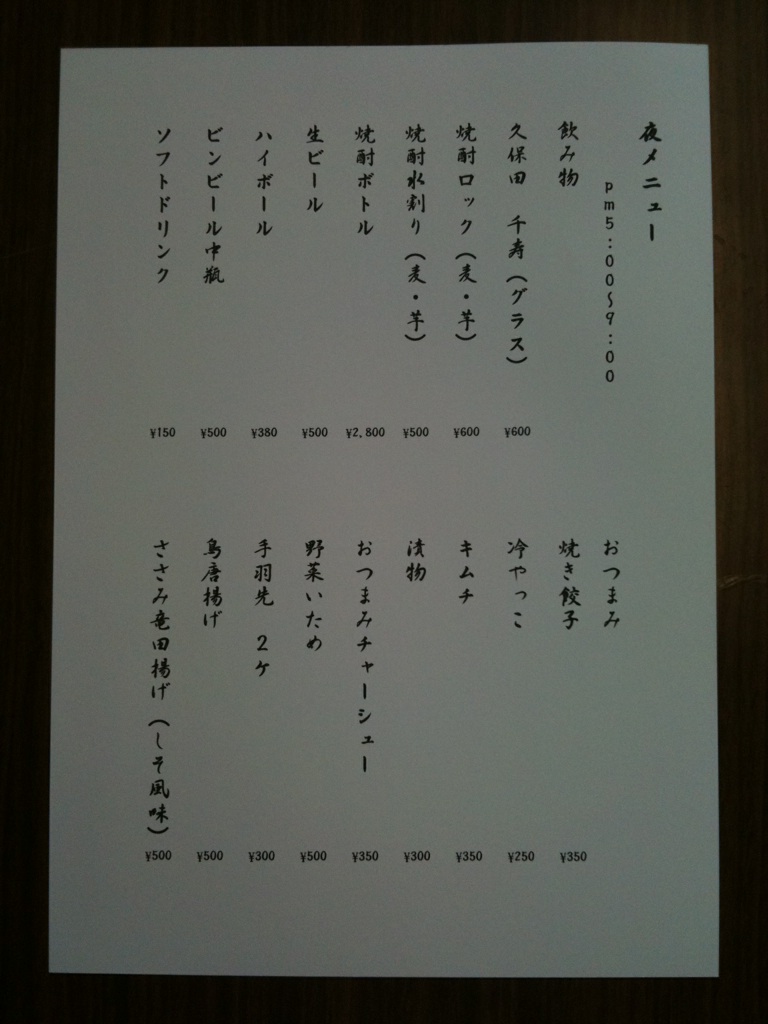 夜メニュー
pm5:00～9:00
飲み物
久保田 千寿(グラス) ¥600
焼酎ロック(麦・芋) ¥600
焼酎水割り(麦・芋) ¥500
焼酎ボトル ¥2,800
生ビール ¥500
ハイボール ¥380
ビンビール中瓶 ¥500
ソフトドリンク ¥150
おつまみ
焼き餃子 ¥350
冷やっこ ¥250
キムチ ¥350
漬物 ¥300
おつまみチャーシュー ¥350
野菜いため ¥500
手羽先 2ケ ¥300
鳥唐揚げ ¥500
ささみ竜田揚げ(しそ風味) ¥500